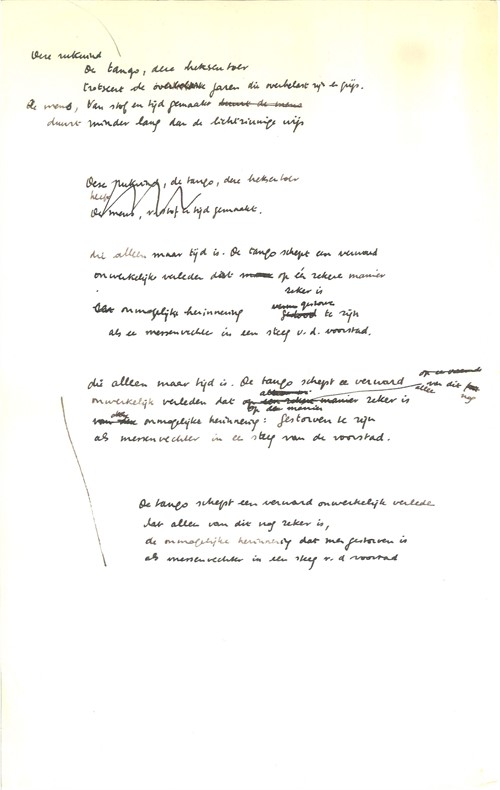 Deze rukwind
De tango, deze heksentoer
trotseert de overbelaste jaren die overbelast zijn en grijs.
De mens, van stof en tijd gemaakt duurt de mens
duurt minder lang dan de lichtzinnige wijs
Deze rukwind, de tango, deze heksentoer
De mens, van stof en tijd gemaakt.
die alleen maar tijd is. De tango schept een verward
onwerkelijk verleden dat op één zekere manier
zeker is
onmogelijke herinnering gestorven
gedood te zijn
als een messenvechter in een steeg v.d. voorstad.
die alleen maar tijd is. De tango schept een verward
alleen van dit nog
onwerkelijk verleden dat op een zekere manier zeker is
op die manier
onmogelijke herinnering: gestorven te zijn
als messenvechter in een steeg van de voorstad.
De tango schept een verward onwerkelijk verleden
dat alleen van dit nog zeker is,
de onmogelijke herinnering dat men gestorven is
als messenvechter in een steeg v. d voorstad